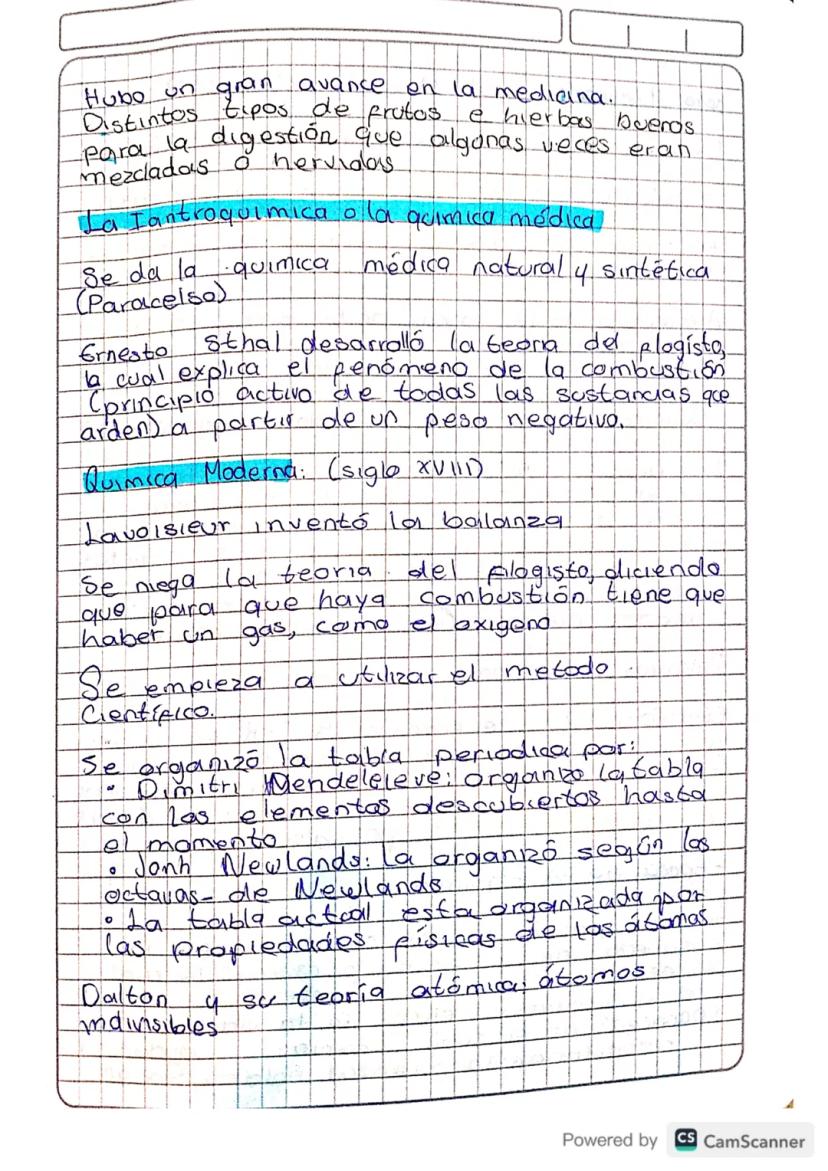 Hubo un gran avance en la medicina.
Distintos tipos de frutos e hierbas buenos
para la digestión que algunas veces eran
mezcladas o hervidas
La Iantroquimica o la quimica médica
Se da la quimica médica natural y sintética
(Paracelso)
Ernesto Sthal desarrolló la teoria del flogisto,
la cual explica el fenómeno de la combustión
(principio activo de todas las sustancias que
arden) a partir de un peso negativo.
Quimica Moderna: (siglo XVIII)
Lavoisieur inventó la balanza
Se niega la teoria del flogisto, diciendo
que para que haya combustión tiene que
haber un gas, como el oxigeno
Se empieza a utilizar el metodo
Científico.
Se organizó la tabla periodica por:
• Dimitri Mendeleleve: organizo la tabla
con los elementos descubiertos hasta
el momento
• Jonh Newlands: la organizó según las
octavas de Newlands
• La tabla actual esta organizada por
las propiedades físicas de los átomos
Dalton y su teoría atómica: átomos
indivisibles
Powered by CS CamScanner